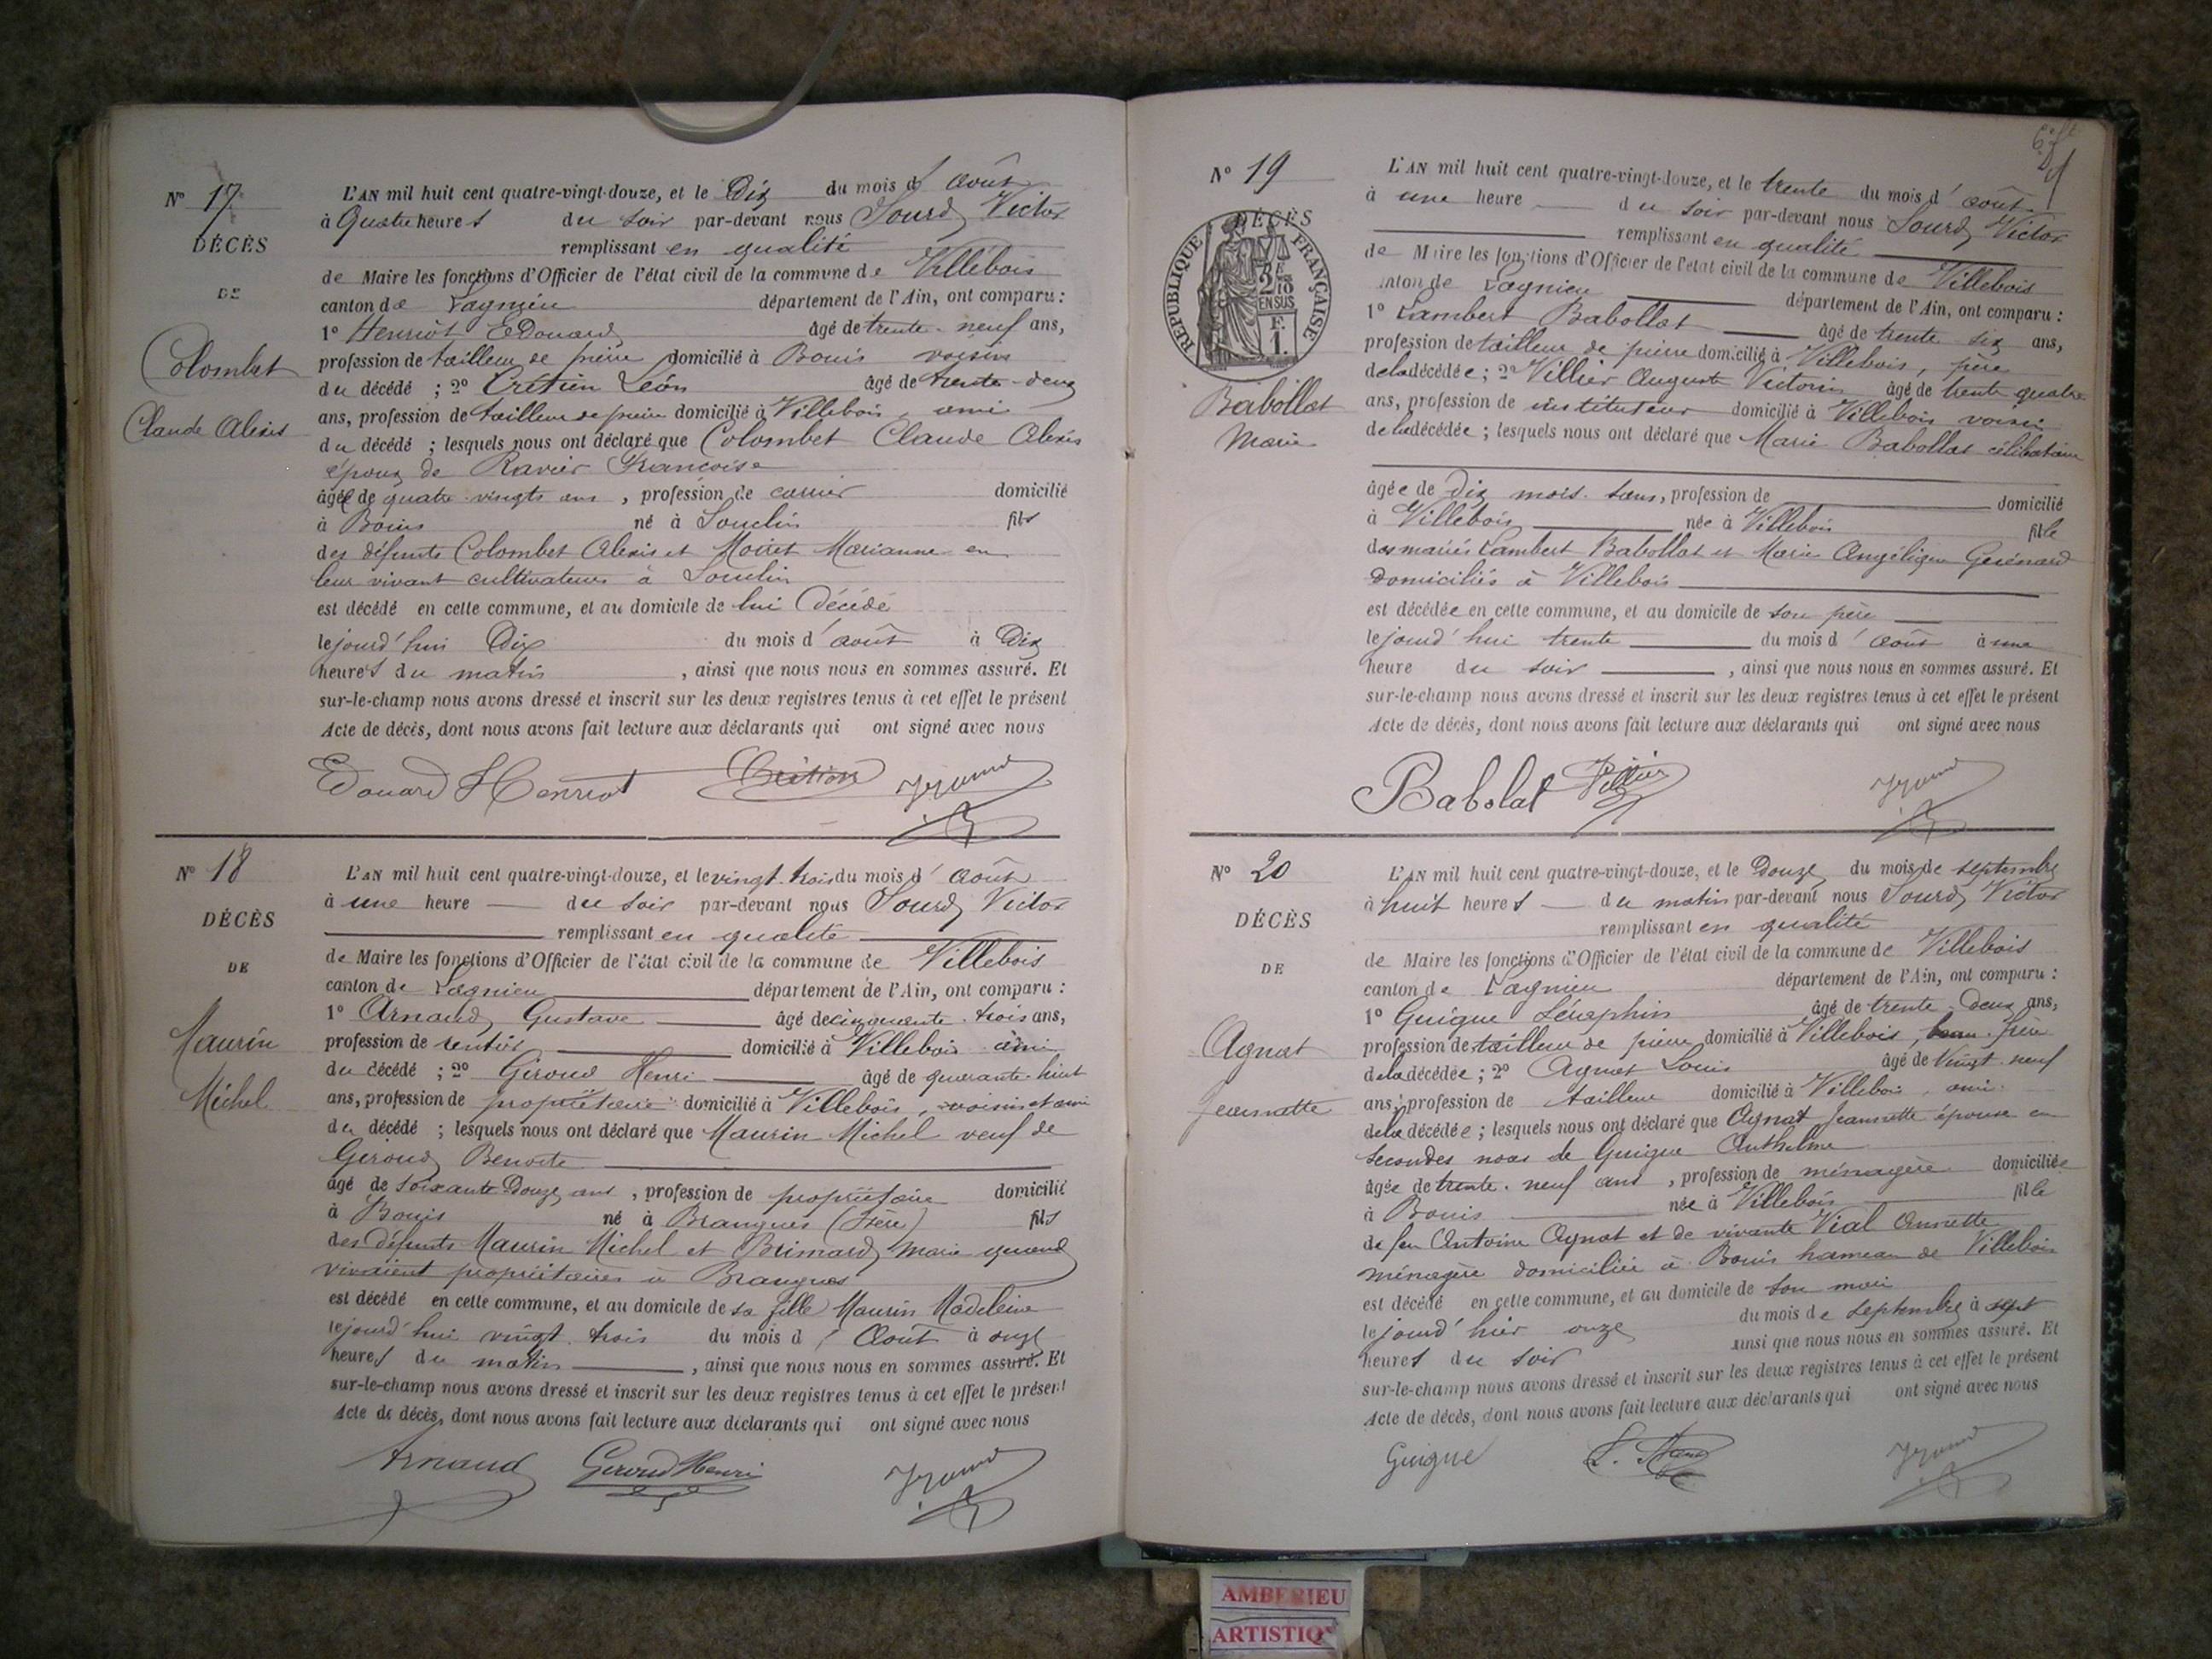 N° 17
DÉCÈS
DE
Colombet
Claude Alexis
L'AN mil huit cent quatre-vingt-douze, et le Dix du mois d'août
à Quatre heures du soir par-devant nous Sourd Victor
remplissant en qualité
de Maire les fonctions d'Officier de l'état civil de la commune de Villebois
canton de Lagnieu département de l'Ain, ont comparu :
1° Henriot Edouard âgé de trente-neuf ans,
profession de tailleur de pierre domicilié à Bouis voisin
du décédé ; 2° Crétien Léon âgé de trente-deux
ans, profession de tailleur de pierre domicilié à Villebois, ami
du décédé ; lesquels nous ont déclaré que Colombet Claude Alexis
époux de Ravier Françoise
âgé de quatre-vingts ans, profession de carrier domicilié
à Bouis né à Souclin fils
des défunts Colombet Alexis et Moiret Marianne en
leur vivant cultivateurs à Souclin
est décédé en cette commune, et au domicile de lui Décédé
le jourd'hui Dix du mois d'août à Dix
heures du matin, ainsi que nous nous en sommes assuré. Et
sur-le-champ nous avons dressé et inscrit sur les deux registres tenus à cet effet le présent
Acte de décès, dont nous avons fait lecture aux déclarants qui ont signé avec nous
Edouard Henriot Crétien
N° 18
DÉCÈS
DE
Maurin
Michel
L'AN mil huit cent quatre-vingt-douze, et le vingt-trois du mois d'août
à une heure du soir par-devant nous Sourd Victor
remplissant en qualité
de Maire les fonctions d'Officier de l'état civil de la commune de Villebois
canton de Lagnieu département de l'Ain, ont comparu :
1° Arnaud Gustave âgé de cinquante-trois ans,
profession de rentier domicilié à Villebois ami
du décédé ; 2° Giroud Henri âgé de quarante-huit
ans, profession de propriétaire domicilié à Villebois, voisin et ami
du décédé ; lesquels nous ont déclaré que Maurin Michel veuf de
Giroud Benoite
âgé de soixante Douze ans, profession de propriétaire domicilié
à Bouis né à Brangues (Isère) fils
des défunts Maurin Michel et Brimard Marie quand
vivaient propriétaires à Brangues
est décédé en cette commune, et au domicile de sa fille Maurin Madeleine
le jourd'hui vingt-trois du mois d'Août à onze
heures du matin, ainsi que nous nous en sommes assuré. Et
sur-le-champ nous avons dressé et inscrit sur les deux registres tenus à cet effet le présent
Acte de décès, dont nous avons fait lecture aux déclarants qui ont signé avec nous
Arnaud Giroud Henri
N° 19
DÉCÈS
RÉPUBLIQUE FRANÇAISE
2/10
EN SUS
F.
1.
Babollat
Marie
L'AN mil huit cent quatre-vingt-douze, et le trente du mois d'août
à une heure du soir par-devant nous Sourd Victor
remplissant en qualité
de Maire les fonctions d'Officier de l'état civil de la commune de Villebois
canton de Lagnieu département de l'Ain, ont comparu :
1° Lambert Babollat âgé de trente six ans,
profession de tailleur de pierre domicilié à Villebois, père
de la décédée ; 2° Villier Auguste Victorin âgé de trente quatre
ans, profession de instituteur domicilié à Villebois voisin
de la décédée ; lesquels nous ont déclaré que Marie Babollat célibataire
âgée de dix mois, sans, profession de domicilié
à Villebois née à Villebois fille
des mariés Lambert Babollat et Marie Angélique Guénard
domiciliés à Villebois
est décédée en cette commune, et au domicile de son père
le jourd'hui trente du mois d'août à une
heure du soir, ainsi que nous nous en sommes assuré. Et
sur-le-champ nous avons dressé et inscrit sur les deux registres tenus à cet effet le présent
Acte de décès, dont nous avons fait lecture aux déclarants qui ont signé avec nous
Babolat Villier
N° 20
DÉCÈS
DE
Agnat
Jeannette
L'AN mil huit cent quatre-vingt-douze, et le Douze du mois de septembre
à huit heures du matin par-devant nous Sourd Victor
remplissant en qualité
de Maire les fonctions d'Officier de l'état civil de la commune de Villebois
canton de Lagnieu département de l'Ain, ont comparu :
1° Guigue Séraphin âgé de trente-deux ans,
profession de tailleur de pierre domicilié à Villebois, beau-frère
de la décédée ; 2° Agnat Louis âgé de vingt-neuf
ans, profession de tailleur domicilié à Villebois, ami
de la décédée ; lesquels nous ont déclaré que Agnat Jeannette épouse en
secondes noces de Guigue Anthelme
âgée de trente-neuf ans, profession de ménagère domiciliée
à Bouis née à Villebois fille
de feu Antoine Agnat et de vivante Vial Annette
ménagère domiciliée à Bouis hameau de Villebois
est décédé en cette commune, et au domicile de son mari
le jourd'hier onze du mois de septembre à sept
heures du soir ainsi que nous nous en sommes assuré. Et
sur-le-champ nous avons dressé et inscrit sur les deux registres tenus à cet effet le présent
Acte de décès, dont nous avons fait lecture aux déclarants qui ont signé avec nous
Guigue
AMBERIEU
ARTISTIQ